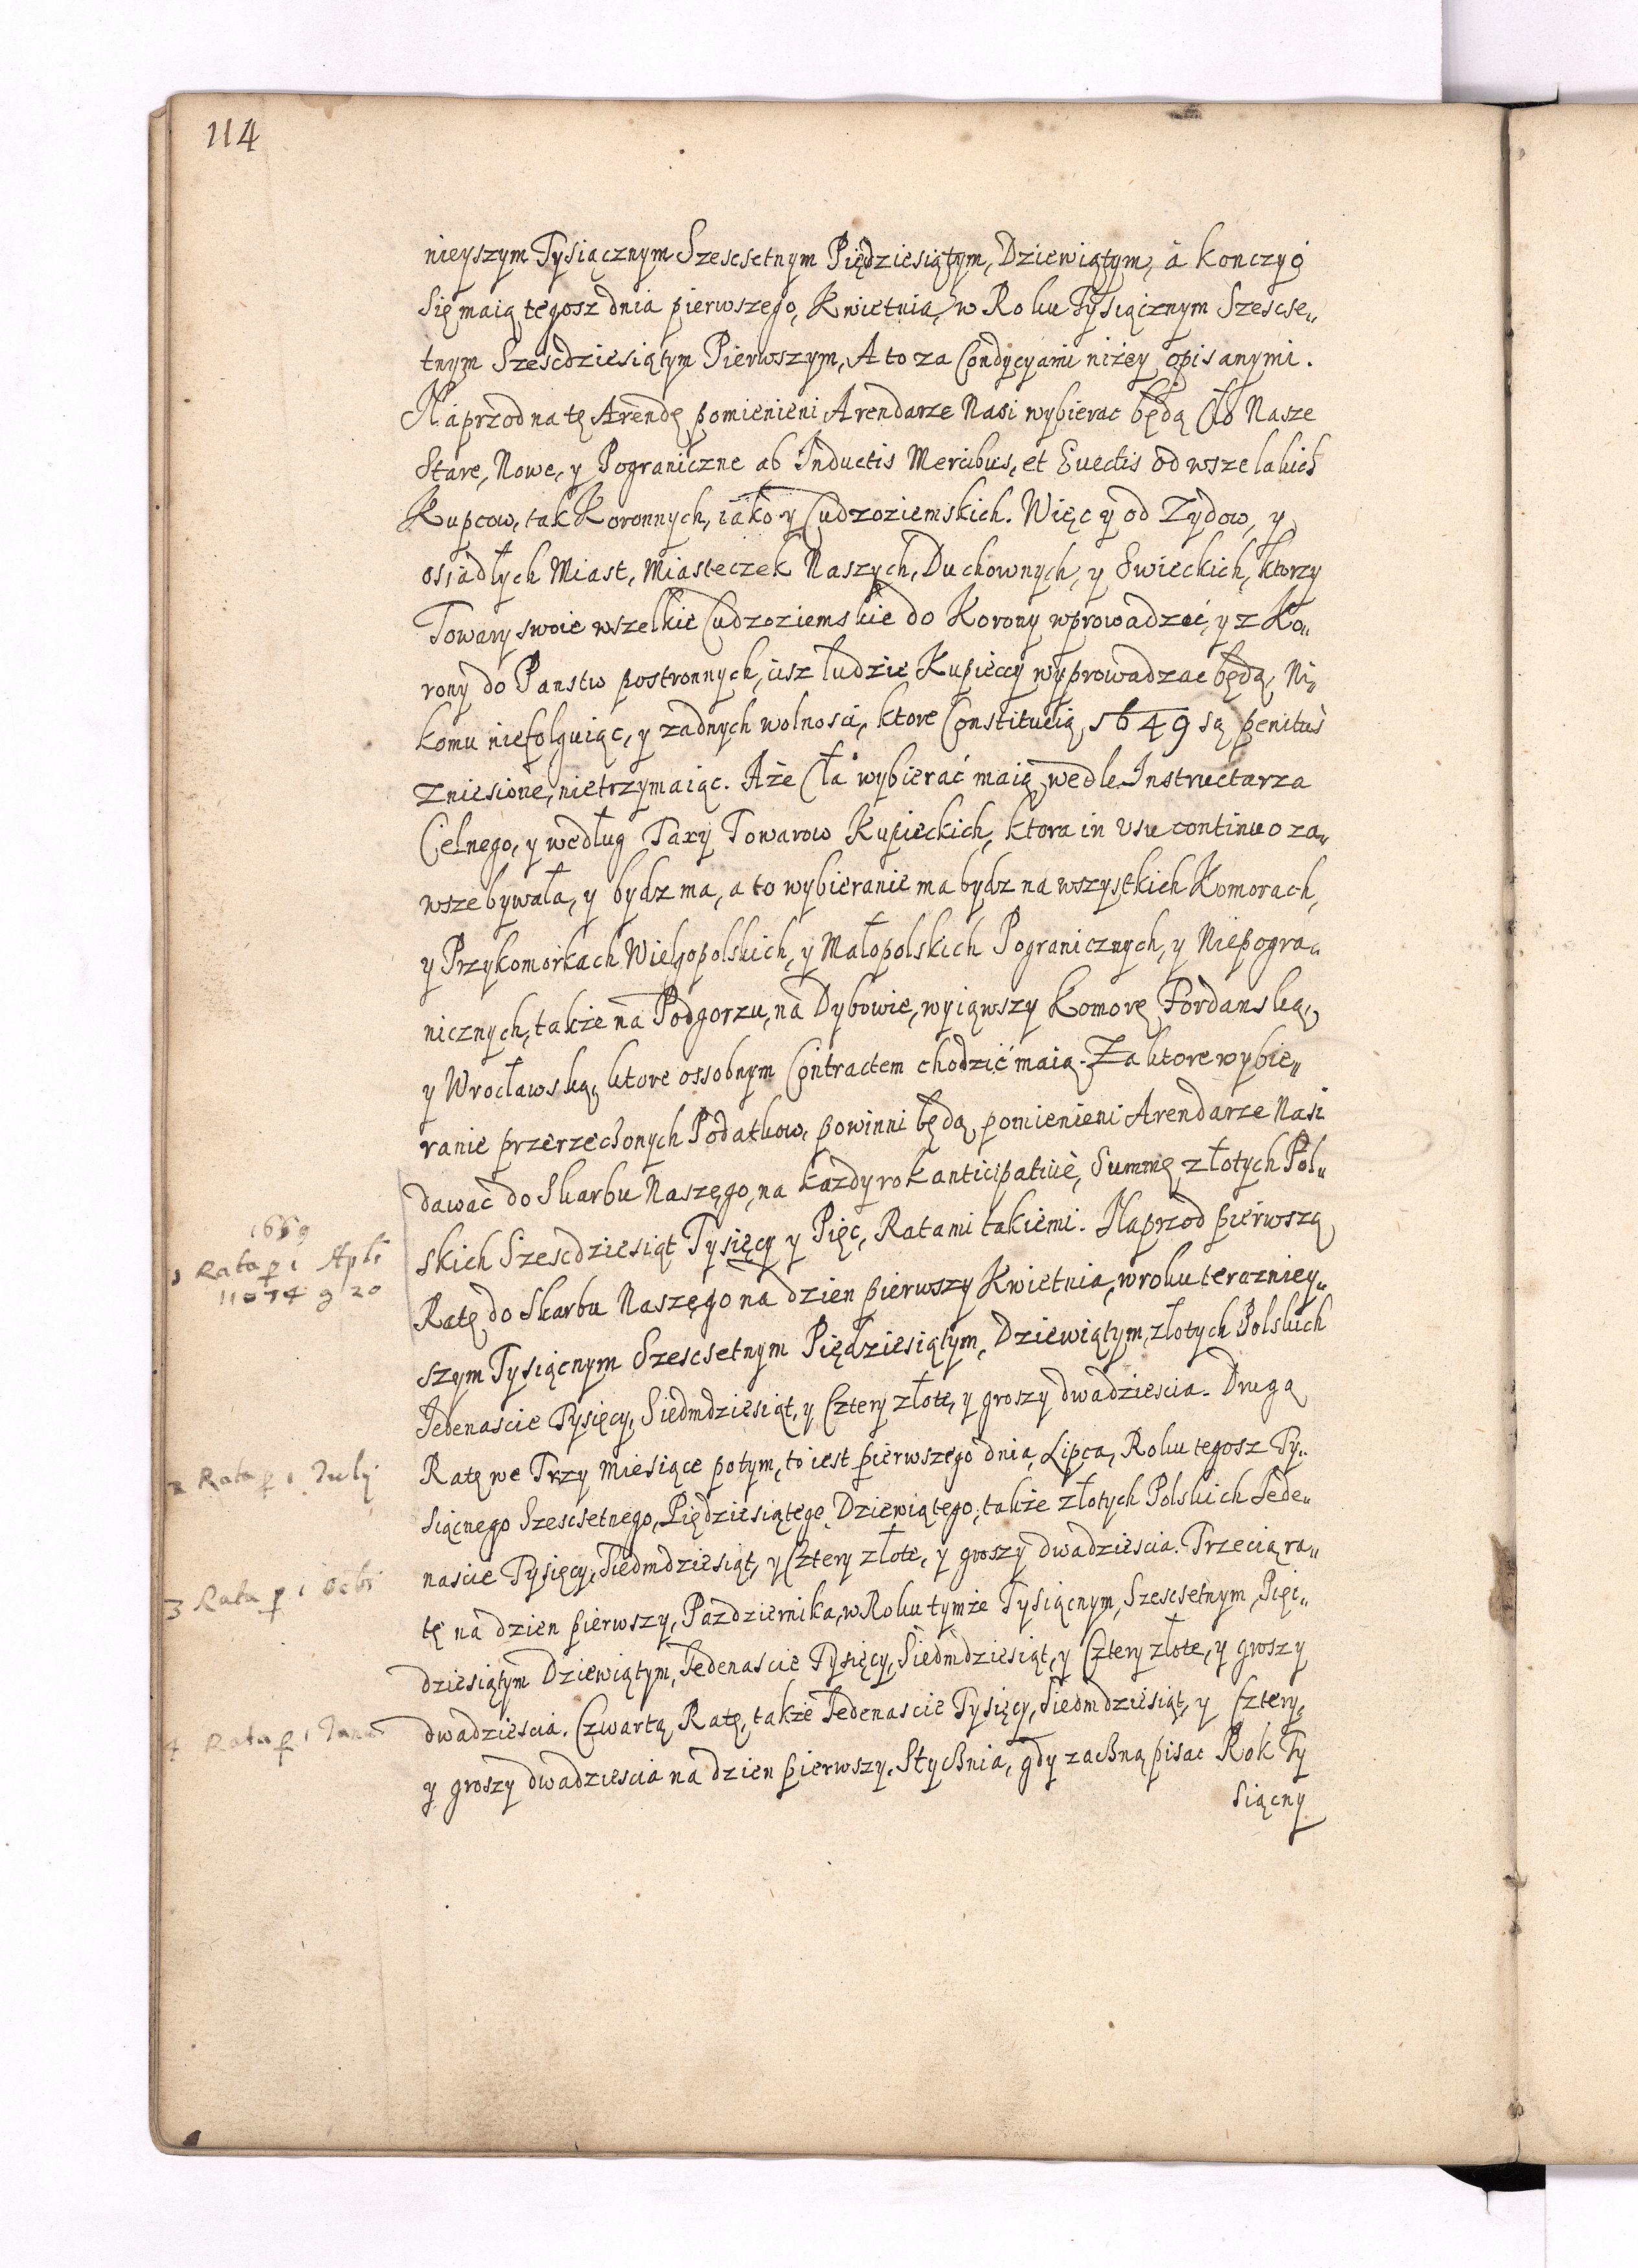 114
nieyszym Tysiącznym Szescsetnym Piędziesiątym, Dziewiątym, á konczyć
Się maią tegosz dnia pierwszego, Kwietnia, w Roku Tysiącznym Szescse„
tnym Szescdziesiątym Pierwszym, A to za Condycyami niżey opisanymi.
Naprzod na tę Arendę pomienieni Arendarze Nasi wybierac będą Cło Nasze
Stare, Nowe, y Pograniczne ab Inductis Mercibus, et Euectis od wszelakich
Kupcow, tak Koronnych, iako y Cudzoziemskich. Więc y od Zydow, y
osiadłych Miast, Miasteczek Naszych, Duchownych, y Swieckich, ktorzy
Towary swoie wszelkie Cudzoziemskie do Korony wprowadzać, y z Ko„
rony do Panstw postronnych, cisz ludzie Kupieccy wyprowadzac będą, Ni„
komu niefolguiąc, y zadnych wolnosci, ktore Constitucią 1649 są penitus
zniesione, nietrzymaiąc. Aże Cła wybierać maią wedle Instructarza
Celnego, y według Taxy Towarow Kupieckich, ktora in vsu continuo za„
wsze bywała, y bydz ma, a to wybieranie ma bydz na wszystkich Komorach,
y Przykomorkach Wielgopolskich, y Małopolskich Pogranicznych, y Niepogra„
nicznych, także na Podgorzu, na Dybowie, wyiąwszy Komorę Fordanską,
y Wrocławską, ktore ossobnym Contractem chodzić maią. Za ktore wybie„
ranie przerzeczonych Podatkow, powinni będą pomienieni Arendarze Nasi
dawac do Skarbu Naszego, na kazdy rok anticipatiuè, Summę złotych Pol„
skich Szescdziesiąt Tysięcy y Pięc, Ratami takiemi. Naprzod pierwszą
Ratę do Skarbu Naszego na dzien pierwszy Kwietnia, w roku terazniey„
szym Tysiącnym Szescsetnym Piędziesiątym, Dziewiątym, złotych Polskich
Jedenascie Tysięcy, Siedmdziesiąt, y Cztery złote, y groszy dwadziescia. Drugą
Ratę we Trzy Miesiące potym, to iest pierwszego dnia, Lipca, Roku tegosz Ty„
siącnego Szescsetnego, Piędziesiątego Dziewiątego, także złotych Polskich Jede„
nascie Tysięcy, Siedmdziesiąt, y Cztery złote, y groszy dwadziescia. Trzecią ra„
tę na dzien pierwszy, Pazdziernika, w Roku tymże Tysiącnym, Szescsetnym, Pięc„
dziesiątym Dziewiątym, Jedenascie Tysięcy, Siedmdziesiąt, y Cztery złote, y groszy
dwadziescia. Czwartą Ratę, także Jedenascie Tysięcy, Siedmdziesiąt, y Cztery,
y groszy dwadziescia na dzien pierwszy, Stycznia, gdy zaczną pisac Rok Ty
siącny
1659
1 Rata p 1 Apli
11074 g 20
2 Rata p 1 July
3 Rata p 1 Octbr
4 Rata p 1